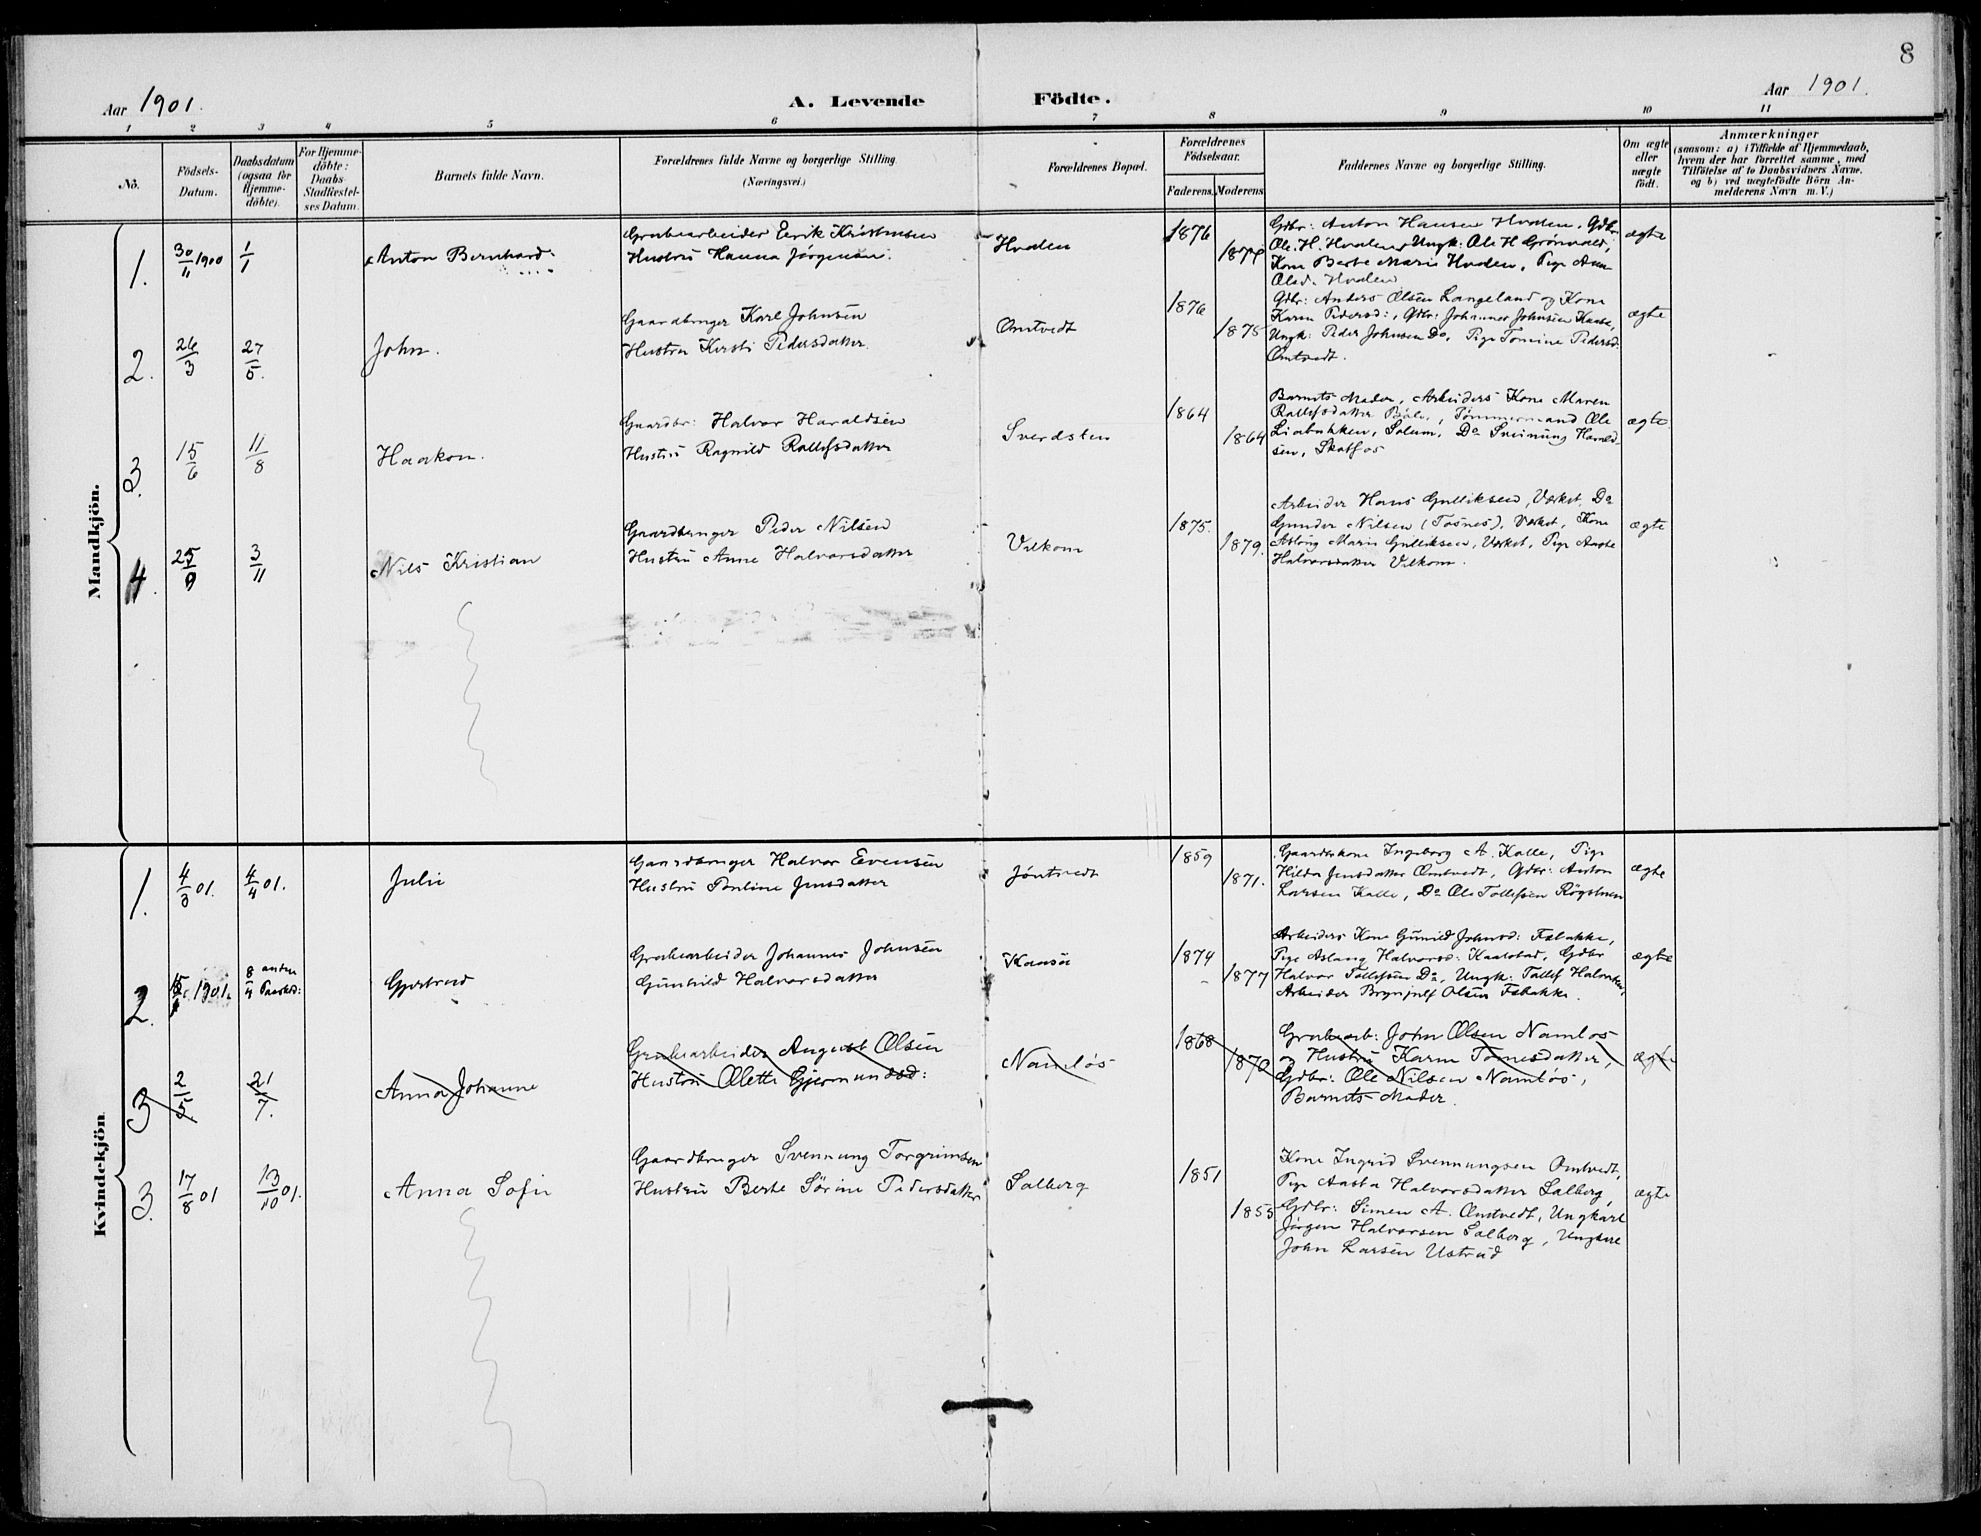 8
Aar 1901.
A. Levende Födte.
Aar 1901.
1 2 3 4 5 6 7 8 9 10 11
No.
Födsels-
Datum.
Daabsdatum
(ogsaa for
Hjemme-
döbte).
For Hjemme-
döbte:
Daabs
Stadfæstel-
ses Datum.
Barnets fulde Navn.
Forældrenes fulde Navne og borgerlige Stilling.
(Næringsvei.)
Forældrenes Bopæl.
Forældrenes
Födselsaar.
Faderens.
Moderens.
Faddernes Navne og borgerlige Stilling.
Om ægte
eller
uægte
födt.
Anmærkninger
(saasom: a) i Tilfælde af Hjemmedaab,
hvem der har forrettet samme, med
Tilföielse af to Daabsvidners Navne,
og b) ved uægtefödte Börn An-
melderens Navn m. V.)
Mandkjön.
1. 30/11 1900 1/1
Anton Bernhard
Grubearbeider Eerik Kristensen
Hustru Hanna Jørgensen.
Hvalen
1876
Gdbr: Anton Hansen Hvalen, Gdbr
Ole H. Hvalen, Ungk: Ole H Grönvold,
Kone Berte Marie Hvalen, Pige
Olsd. Hvalen
ægte
2. 26/3 27/5.
John.
Gaardbruger Karl Johnsen
Hustru Kirsti Pedersdatter
Omtvedt
1876
1875
Gdbr: Anders Olsen Langeland og Kone
Karen Pedersd:, Gdbr: Johannes Johnsen Kaasa,
Ungk: Peder Johnsen Do, Pige Tomine Pedersd:
Omtvedt.
ægte
3. 15/6 11/8
Haakon.
Gaardbr: Halvor Haraldsen
Hustru Ragnild Rollefsdatter
Sverdsten
1864
1864
Barnets Moder, Arbeiders Kone Maren
Rollefsdatter Böle, Tömmermand Ole
Liabakken, Solum, Do Sveinung Harald-
sen, Skotfos
ægte
4. 25/9 3/11
Nils Kristian
Gaardbruger Peder Nilsen
Hustru Anne Halvorsdatter
Vilkom
1875.
1879.
Arbeider Hans Gulliksen, Værket, Do
Gunder Nilsen (Tosnes), Værket, Kone
Aslaug Marie Gulliksen, Værket, Pige Aaste
Halvorsdatter Vilkom.
ægte
Kvindekjön
1. 4/3 01. 4/4 01.
Julie
Gaardbruger Halvor Evensen
Hustru Pauline Jensdatter
Jöntvedt
1859
1871.
Gaardkone Ingeborg A. Kalle, Pige
Hilda Jensdatter Omtvedt, Gdbr: Anton
Larsen Kalle, Do Ole Tollefsen
ægte
2. 1901. 8/4 anden Paaskd:
Gjertrud
Grubearbeider Johannes Johnsen
Gunhild Halvorsdatter
Kaasa
1874
1877
Arbeiders Kone Gunild Johnsd: Fæbakke,
Pige Aslaug Halvorsd: Kaalstad, Gdbr
Halvor Tollefsen Do, Ungk: Tollef Halvorsen,
Arbeider Brynjulf Olsen Fæbakke.
ægte
3 2/5 21/7.
Anna Johanne
Grubearbeider August Olsen
Hustru Olette Gjermundsd:
Namløs
1868
1870
Grubearb: John Olsen Namløs
og Hustru Karen Tonnesdatter,
Gdbr: Ole Nilsen Namløs,
Barnets Moder.
ægte
3. 17/8 01 13/10 01.
Anna Sofie
Gaardbruger Svennung Torgrimsen
Hustru Berte Sörine Pedersdatter
Salberg
1851
1853
Kone Ingrid Svennungsen Omtvedt,
Pige Aasta Halvorsdatter Salberg,
Gdbr: Simen A. Omtvedt, Ungkarl
Jörgen Halvorsen Salberg, Ungkarl
John Larsen Ustrud
ægte